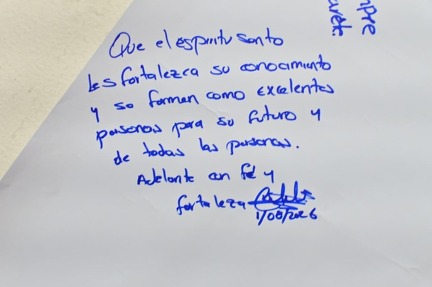 Que el espiritu santo
les fortalezca su conocimiento
y se formen como excelentes
personas para su futuro y
de todas las personas.
Adelante con fe y
fortaleza
1/08/2026
mpre